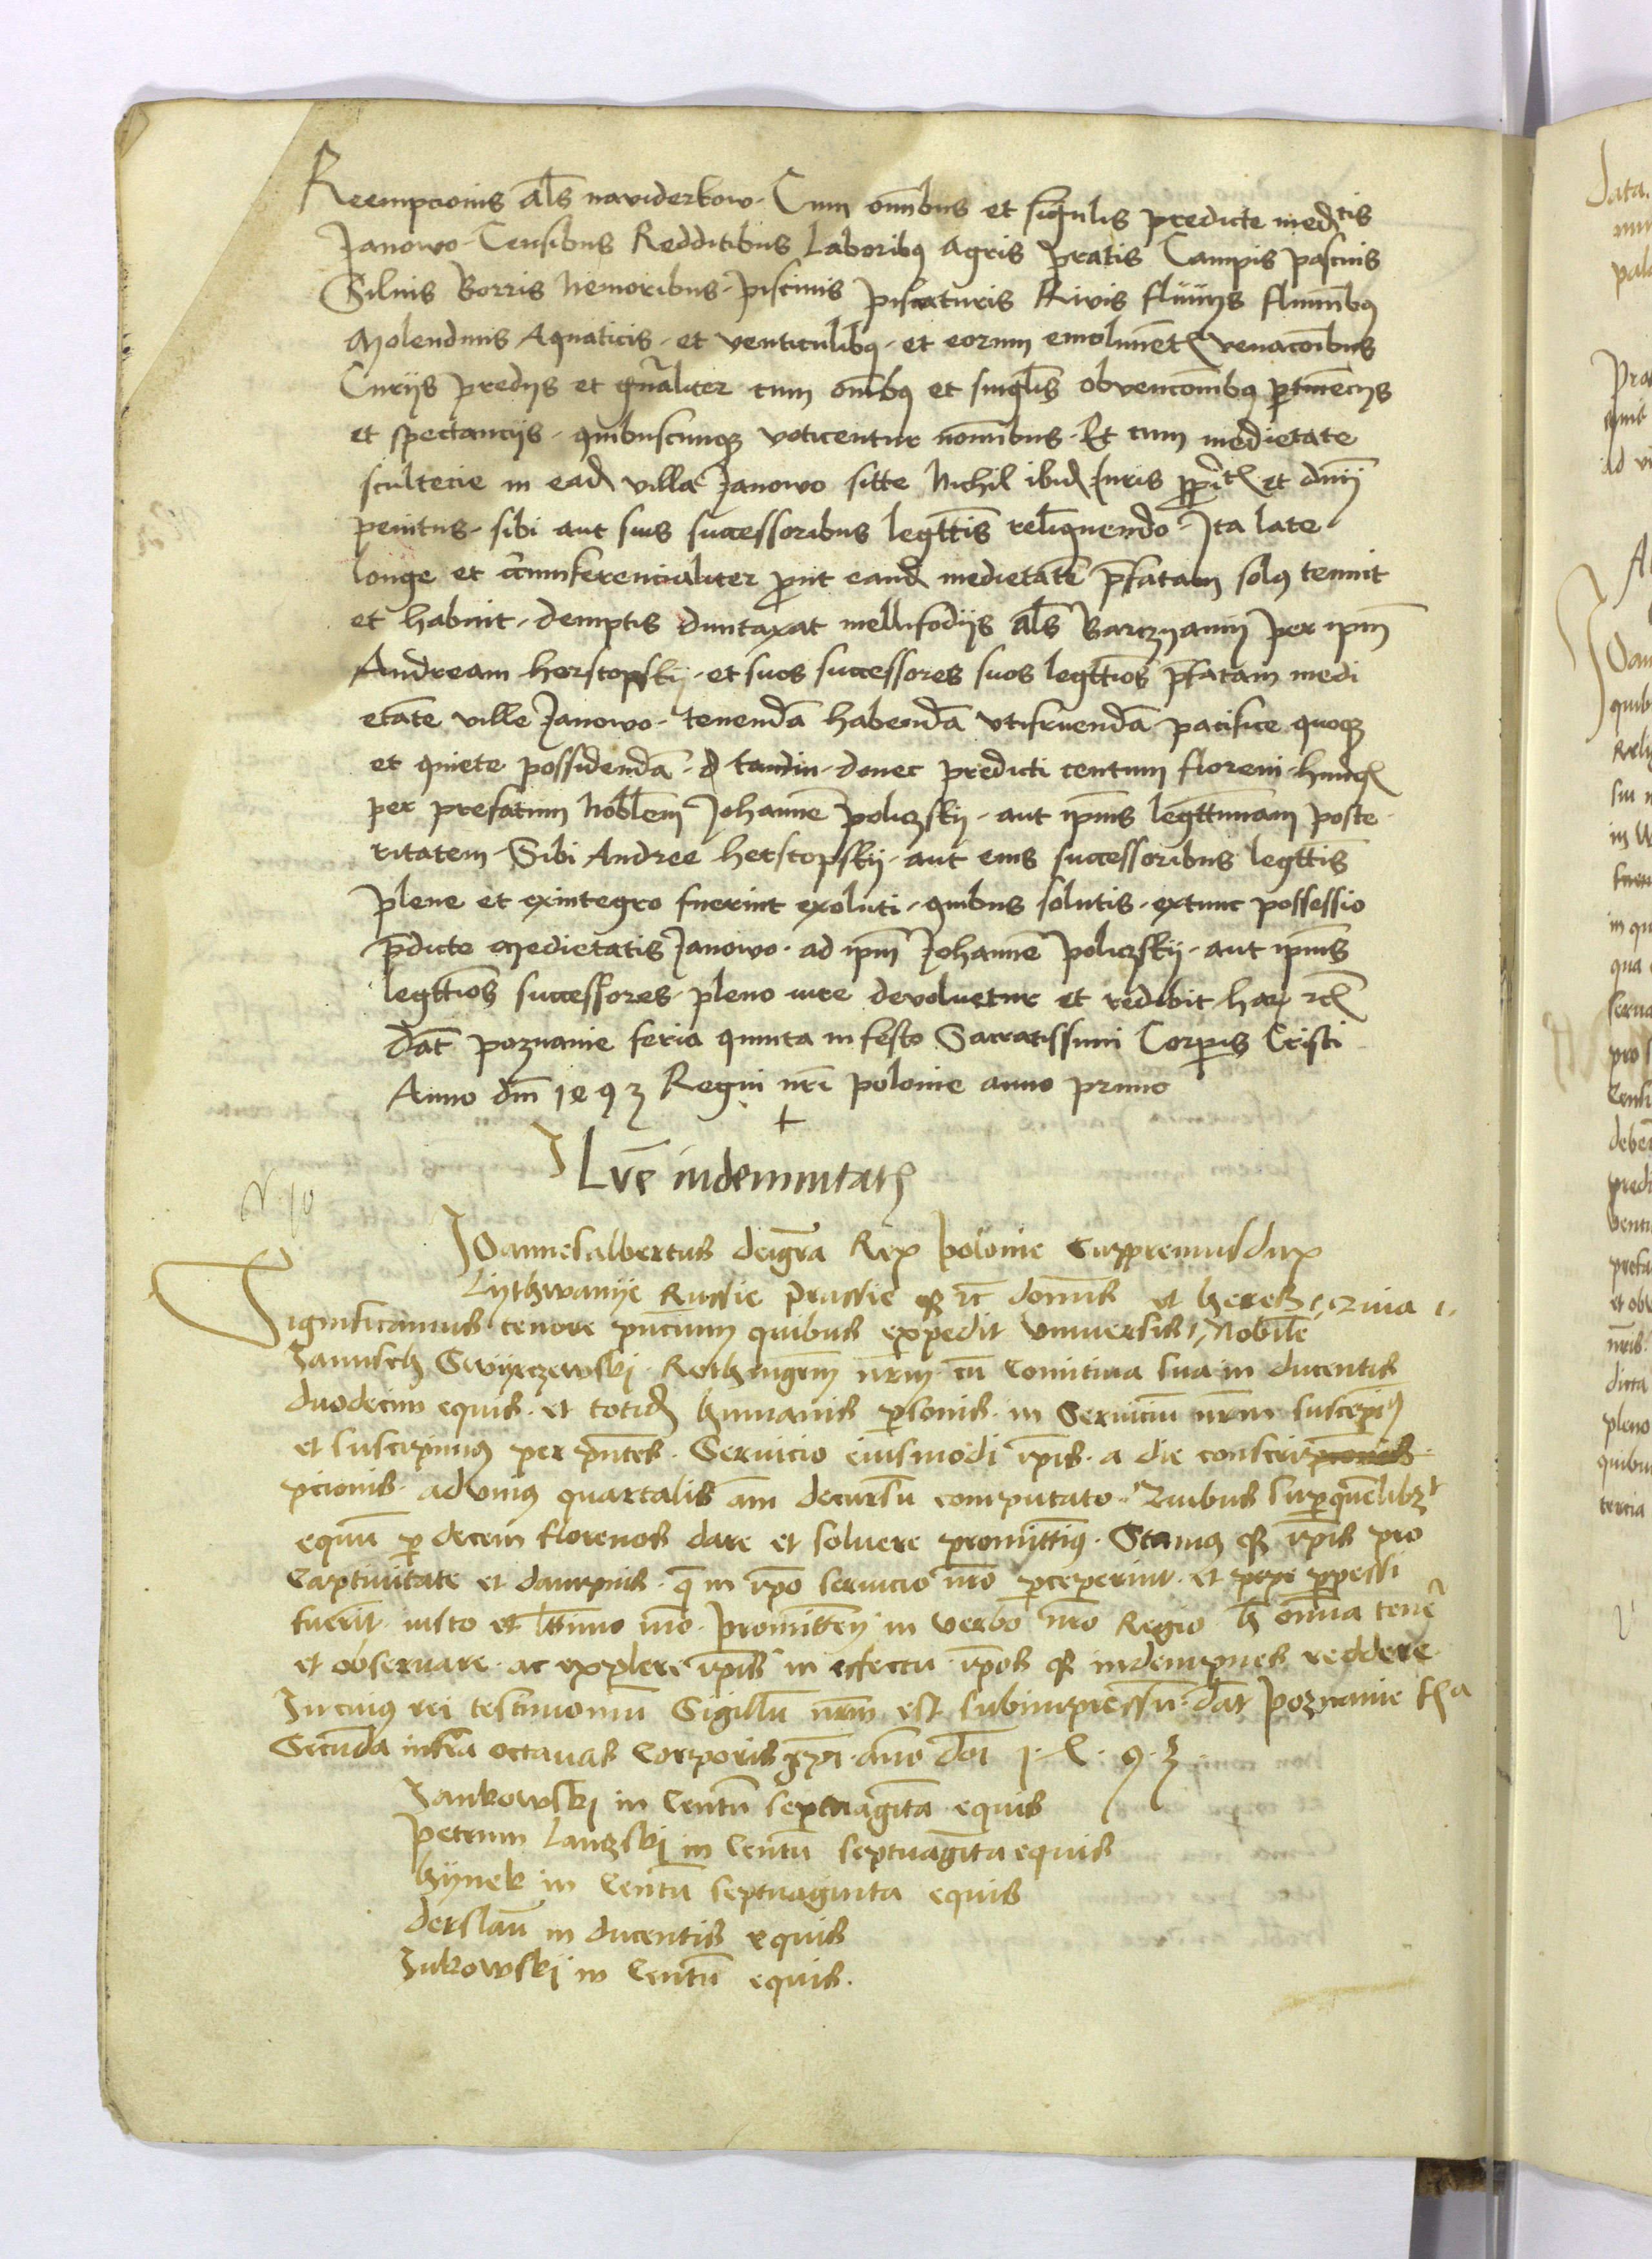 Reempcionis als naviderkow. Cum omībus et singulis predicte međtis
Janowo. Censibus Redditibus Laboribꝯ Agris pratis Campis pascuis
Siluis Borris Nemoribus. piscinis piscaturis Rivis fluuijs fluminibꝯ
Molendinis Aquaticis. et venticulibꝯ. et eorum emolumētꝭ venacōibus
Curijs predijs et gn̄aliter cum om̄ibꝯ et singl̄is obvencōnibꝯ ꝑtinēcijs
et spectancijs. quibuscunqꝫ vocicentur nomībus. Et cum medietate
scultecie in eađ villa Janowo sitte Nichil ibiđ Juris ꝓpriēt͛ꝭ et dnīj
penitus. sibi aut suis successoribus legttīs reliquendo. Ita late
longe et circumferencialiter ꝓut eanđ medietatē p̄fatam solꝯ tenuit
et habuit. demptis duntaxat mellifodijs al̄s Barczyamij per ip̄m
Andream herstopskij. et suos successores suos legttīos p̄fatam medi
etatē ville Janowo. tenendā habendā vtifruendā pacifice quoqꝫ
et quiete possidendā. tamdiu. donec predicti centum floreni hungꝭ
per prefatum Nobl̄em Johannē policzskij. aut ip̄ius legttimam poste
ritatem. Sibi Andree herstopskij. aut eius successoribus legttīs
plene et exintegro fuerint exoluti. quibus solutis. extunc possessio
p̄dicte Medietatis Janowo. ad ip̄m Johannē policzskij. aut ip̄ius
legttīos successores pleno iure devoluetur et redibit har̄ ꝛcꝭ
Dat̄ poznanie feria quinta in festo Sacratissimi Corpis Cristi
Anno dn̄i 1493 Regni nr̄i polonie anno primo
Lr̄e indemnitatꝭ
N. 10
Joannesalbertus deigr̄a Rex polonie Suppremusdux
Lythwanije Russie prussie qꝫ ꝛc̄ domin̄s et heres
Significamus tenore pn̄cium quibus expedit vniuersis, Nobilē
Janusch Swijrczewski. Rothmgr̄m nr̄m cū Comitiua sua in ducentis
duodecim equis. et totiđ humanis ꝑsonis. in Seruiciū nr̄m suscepīꝯ
et suscipimꝯ per pn̄tes. Seruicio eiusmodi ip̄is. a die conscri
pcionis. ad vniꝯ quartalis an̄i decursū computato. Quibus suꝑ quēlibꝫ
equū ꝑ decem florenos dare et soluere promittīꝯ. Stamꝯ qꝫ ip̄is pro
captiuitate et dampnis. q̄ in ip̄o seruicio nr̄o ꝑceperint. et ꝑpessi
fuerīt. iusto et lttimo mō. promitten̄ in verbo nr̄o Regio h̄ om̄ia tenē
et obseruare. ac explere ip̄is in effectu ip̄os qꝫ indempnes reddere
In cuiꝯ rei testimoniū Sigillū nr̄m est subimpressū. Dat̄ poznanie fꝭa
Secūda infra octauas Corporis xp̄i. Anno dn̄i 1. 4. 9. 3.
Jankowskj in Centū septuagīta equis
petrum Lanczskj in Centū septuagīta equis
hijnek in Centū septuaginta equis
Derslaū in ducentis equis
Zukowskj in Centū equis.